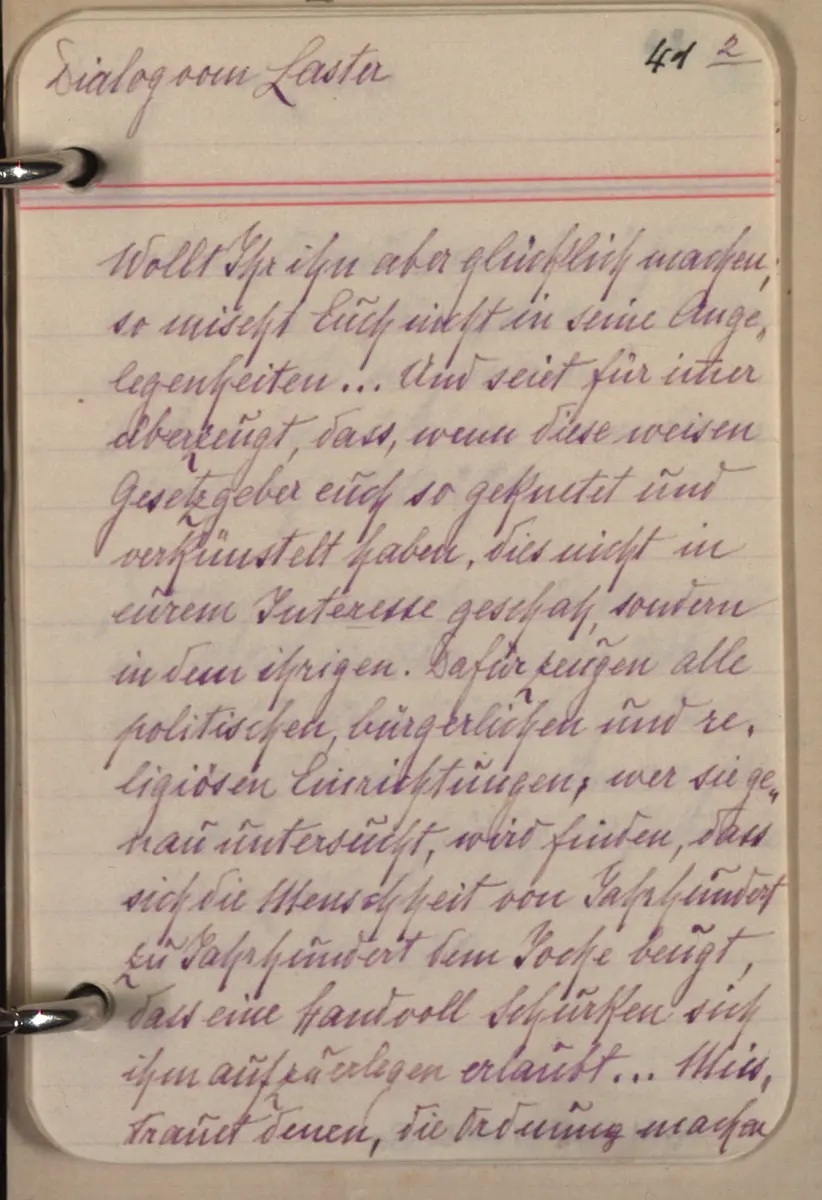 Dialog vom Laster
41 2
Wollt Ihr ihn aber glücklich machen,
so mischt Euch nicht in seine Ange„
legenheiten... Und seiet für im̄er
überzeugt, dass, wenn diese weisen
Gesetzgeber euch so geknetet und
verkünstelt haben, dies nicht in
eurem Interesse geschah, sondern
in dem ihrigen. Dafür zeugen alle
politischen, bürgerlichen und re„
ligiösen Einrichtungen; wer sie ge„
nau untersucht, wird finden, dass
sich die Menschheit von Jahrhundert
zu Jahrhundert dem Joche beugt,
dass eine Handvoll Schurken sich
ihm aufzuerlegen erlaubt... Miss„
trauet denen, die Ordnung machen